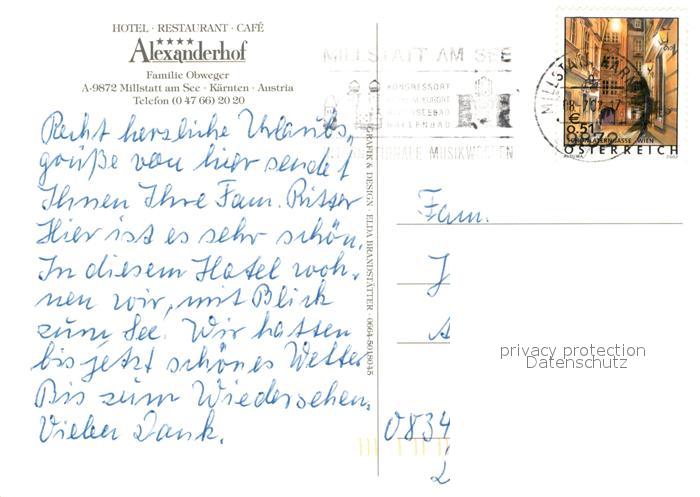 HOTEL · RESTAURANT · CAFÉ
Alexanderhof
Familie Obweger
A-9872 Millstatt am See · Kärnten · Austria
Telefon (0 47 66) 20 20
Recht herzliche Urlaubs,
grüße von hier sendet
Ihnen Ihre Fam. Ritter
Hier ist es sehr schön.
In diesem Hotel woh-
nen wir, mit Blick
zum See. Wir hatten
bis jetzt schönes Wetter
Bis zum Wiedersehen.
Vielen Dank.
GRAFIK & DESIGN · ELDA BRANDSTÄTTER · 0664-5018045
MILLSTATT AM SEE
KONGRESSORT
KURORT
SEEBAD
HALLENBAD
MUSIKWOCHEN
MILLSTATT
9872
€ 0,51
WIEN
ÖSTERREICH
2002
Fam.
J
A
0834
privacy protection
Datenschutz